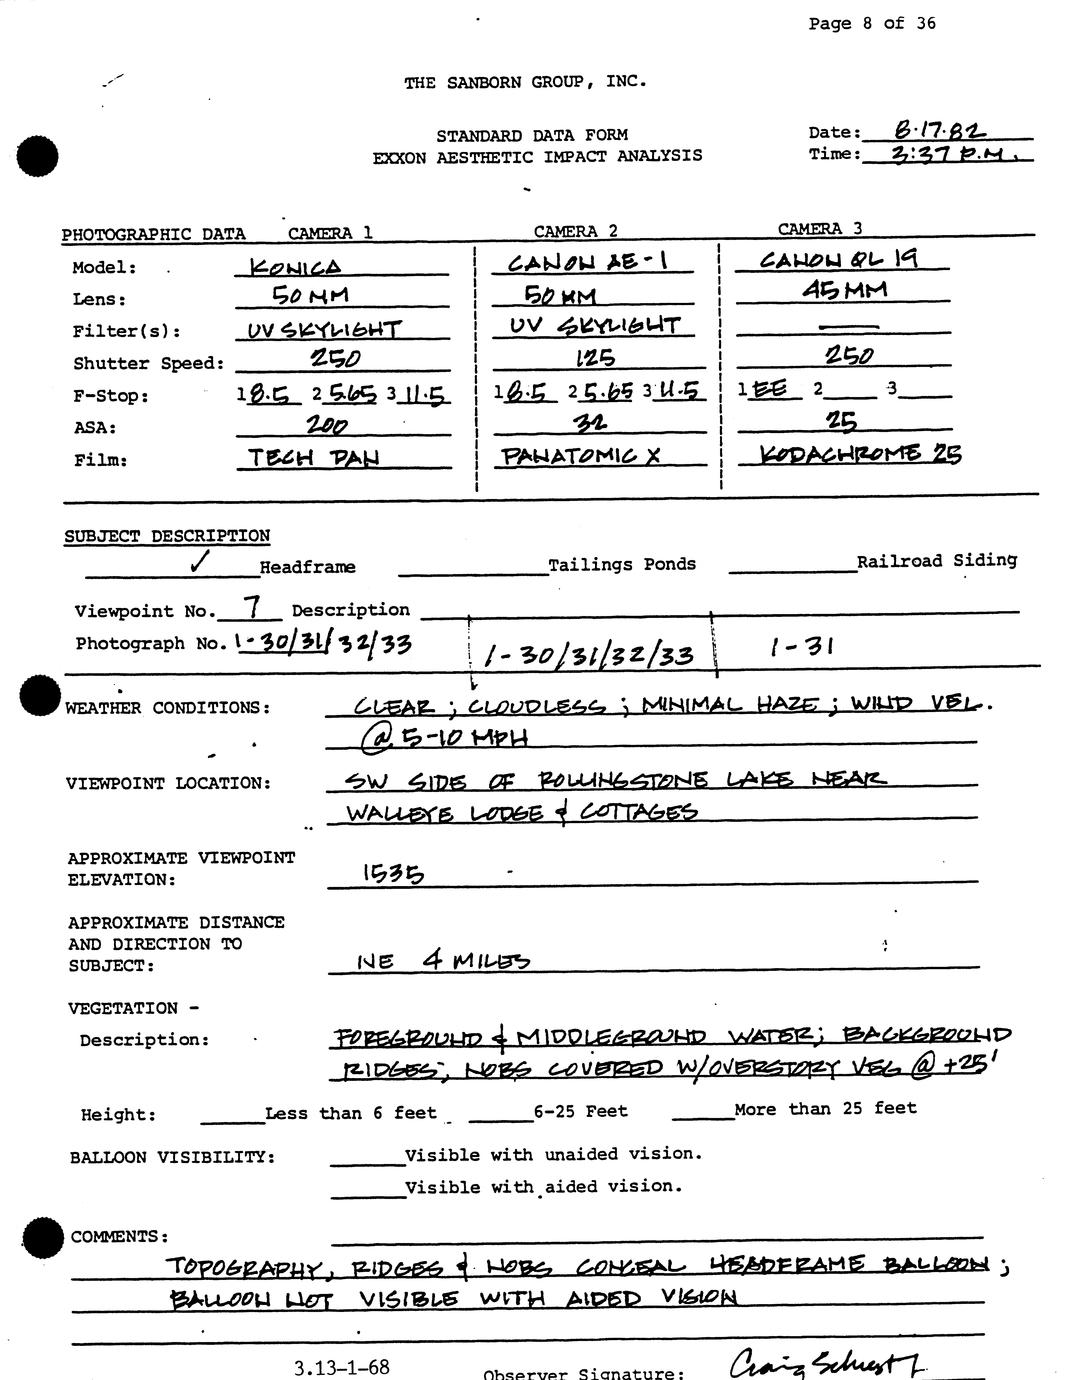 Page 8 of 36
THE SANBORN GROUP, INC.
STANDARD DATA FORM
EXXON AESTHETIC IMPACT ANALYSIS
Date: 8·17·82
Time: 3:37 P.M.
PHOTOGRAPHIC DATA CAMERA 1 CAMERA 2 CAMERA 3
Model: KONICA CANON AE-1 CANON QL 19
Lens: 50 MM 50 MM 45 MM
Filter(s): UV SKYLIGHT UV SKYLIGHT —
Shutter Speed: 250 125 250
F-Stop: 1 8.5 2 5.65 3 11.5 1 8.5 2 5.65 3 11.5 1 EE 2 3
ASA: 200 32 25
Film: TECH PAN PANATOMIC X KODACHROME 25
SUBJECT DESCRIPTION
✓ Headframe Tailings Ponds Railroad Siding
Viewpoint No. 7 Description
Photograph No. 1-30/31/32/33 1-30/31/32/33 1-31
WEATHER CONDITIONS: CLEAR; CLOUDLESS; MINIMAL HAZE; WIND VEL.
@ 5-10 MPH
VIEWPOINT LOCATION: SW SIDE OF ROLLINGSTONE LAKE NEAR
WALLEYE LODGE & COTTAGES
APPROXIMATE VIEWPOINT
ELEVATION: 1535
APPROXIMATE DISTANCE
AND DIRECTION TO
SUBJECT: NE 4 MILES
VEGETATION -
Description: FOREGROUND & MIDDLEGROUND WATER; BACKGROUND
RIDGES; NOBS COVERED W/OVERSTORY VEG @ +25'
Height: Less than 6 feet 6-25 Feet More than 25 feet
BALLOON VISIBILITY: Visible with unaided vision.
Visible with aided vision.
COMMENTS:
TOPOGRAPHY, RIDGES & NOBS CONCEAL HEADFRAME BALLOON;
BALLOON NOT VISIBLE WITH AIDED VISION
3.13-1-68
Observer Signature: Craig